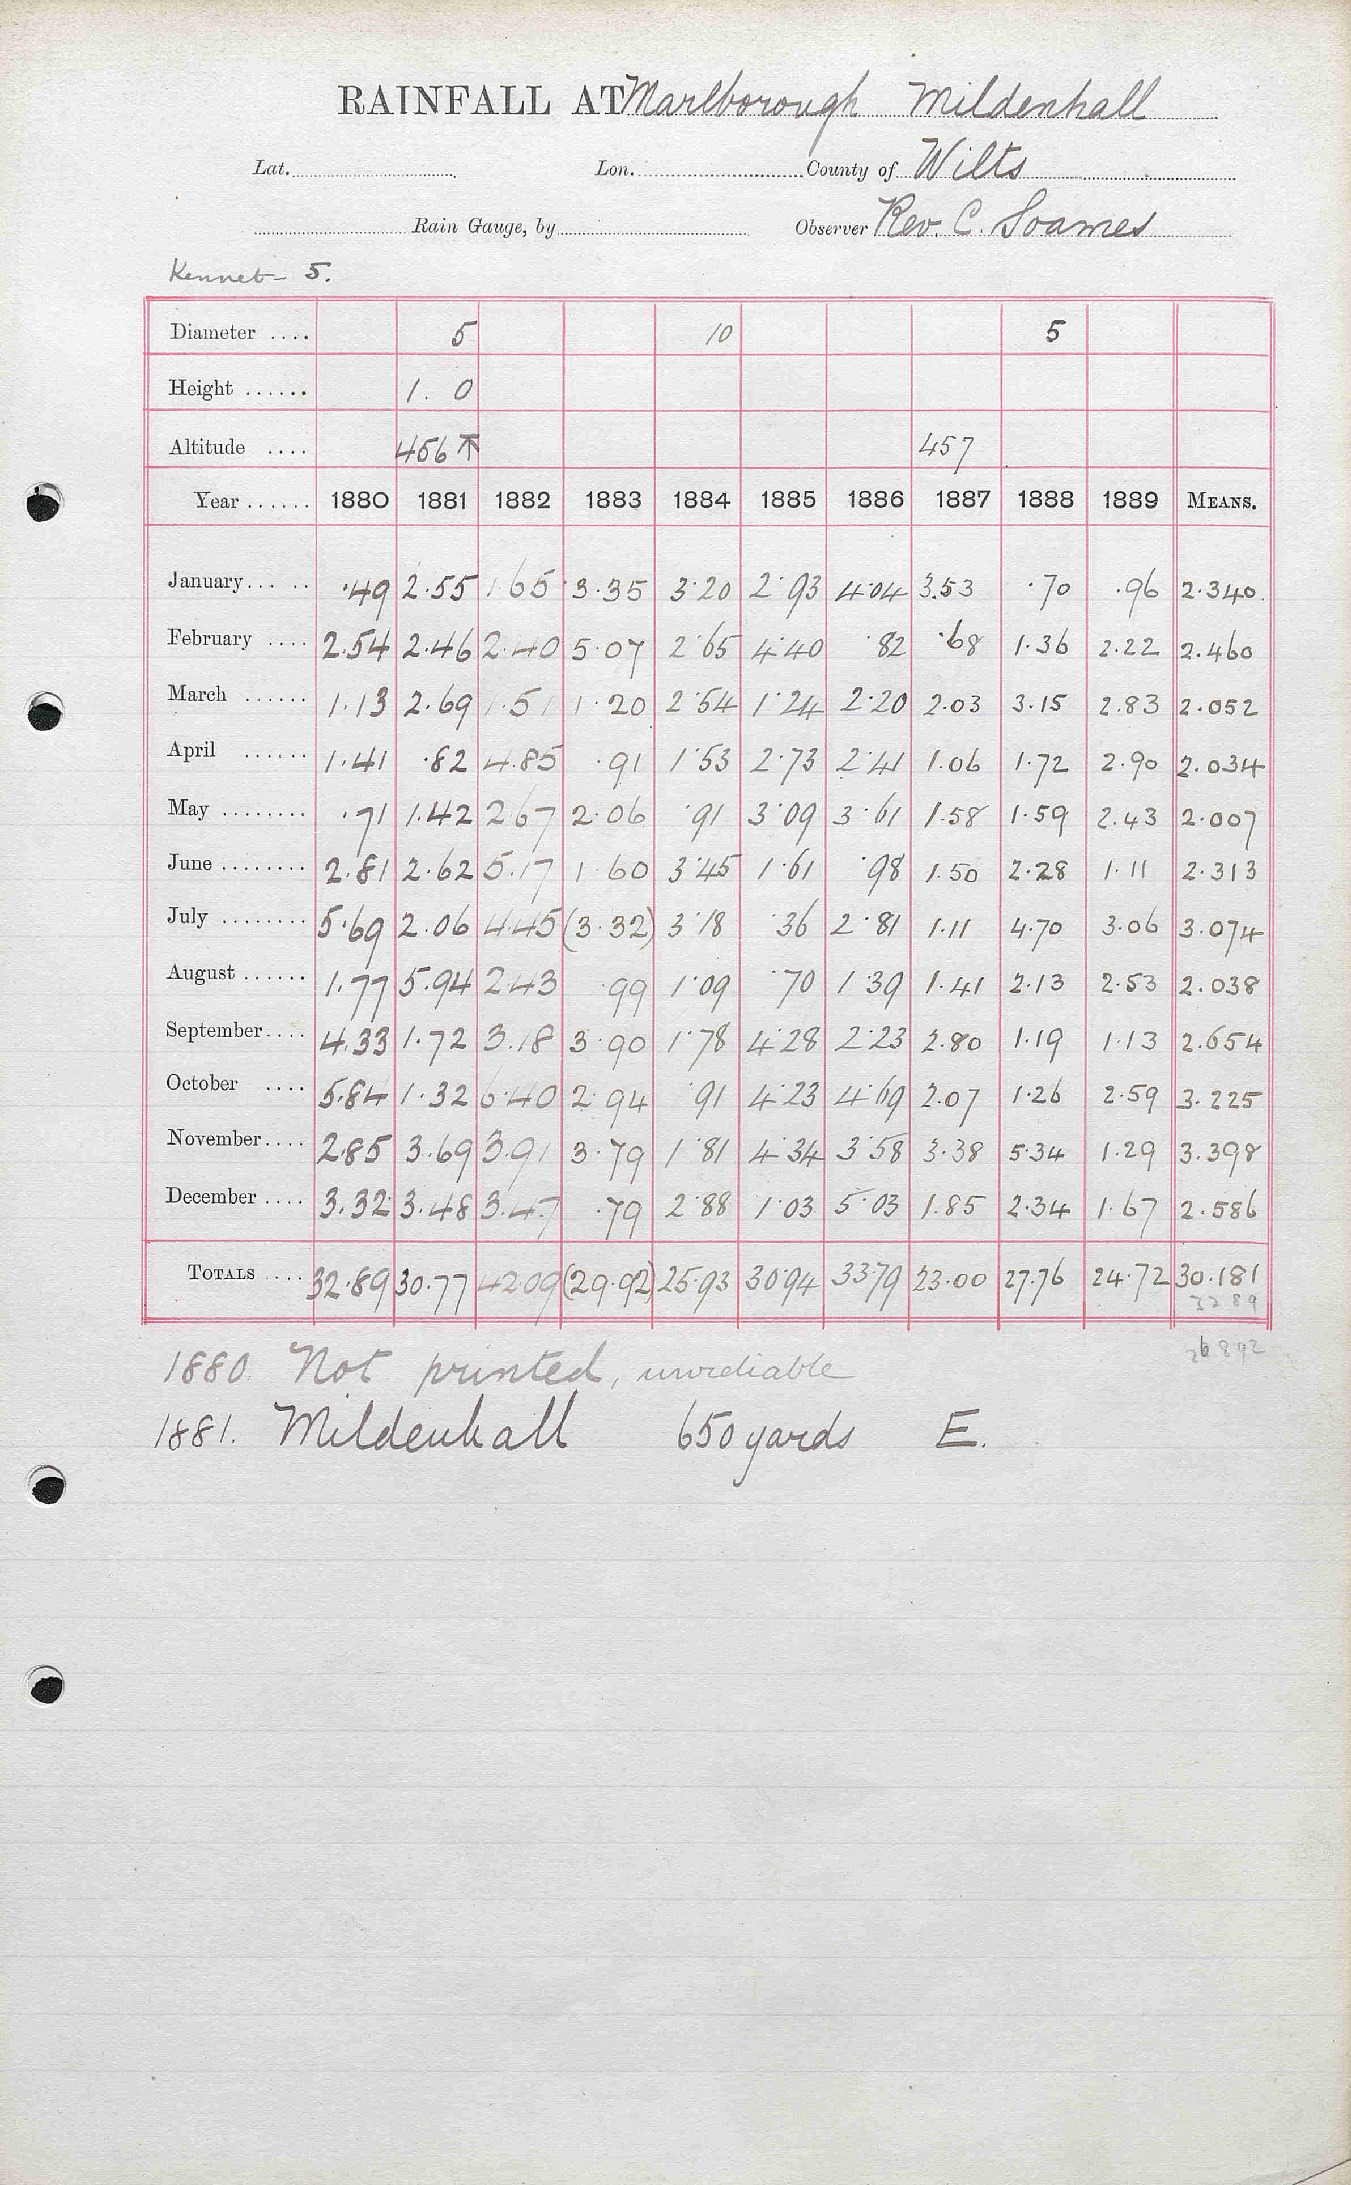 RAINFALL AT Marlborough Mildenhall
Lat. Lon. County of Wilts
Rain Gauge, by Observer Rev. C. Soames
Kennet 5.
Diameter .... 5 10 5
Height ...... 1. 0
Altitude .... 456 457
Year ...... 1880 1881 1882 1883 1884 1885 1886 1887 1888 1889 MEANS.
January ...... .49 2.55 1.65 3.35 3.20 2.93 4.04 3.53 .70 .96 2.340
February .... 2.54 2.46 2.40 5.07 2.65 4.40 .82 .68 1.36 2.22 2.460
March ...... 1.13 2.69 1.51 1.20 2.54 1.24 2.20 2.03 3.15 2.83 2.052
April ...... 1.41 .82 4.85 .91 1.53 2.73 2.41 1.06 1.72 2.90 2.034
May ........ .71 1.42 2.67 2.06 .91 3.09 3.61 1.58 1.59 2.43 2.007
June ........ 2.81 2.62 5.17 1.60 3.45 1.61 .98 1.50 2.28 1.11 2.313
July ........ 5.69 2.06 4.45 (3.32) 3.18 .36 2.81 1.11 4.70 3.06 3.074
August ...... 1.77 5.94 2.43 .99 1.09 .70 1.39 1.41 2.13 2.53 2.038
September .... 4.33 1.72 3.18 3.90 1.78 4.28 2.23 2.80 1.19 1.13 2.654
October .... 5.84 1.32 6.40 2.94 .91 4.23 4.69 2.07 1.26 2.59 3.225
November .... 2.85 3.69 3.91 3.79 1.81 4.34 3.58 3.38 5.34 1.29 3.398
December .... 3.32 3.48 3.47 .79 2.88 1.03 5.03 1.85 2.34 1.67 2.586
TOTALS .... 32.89 30.77 42.09 (29.92) 25.93 30.94 33.79 23.00 27.76 24.72 30.181
32 89
26 892
1880. Not printed, unreliable
1881. Mildenhall 650 yards E.